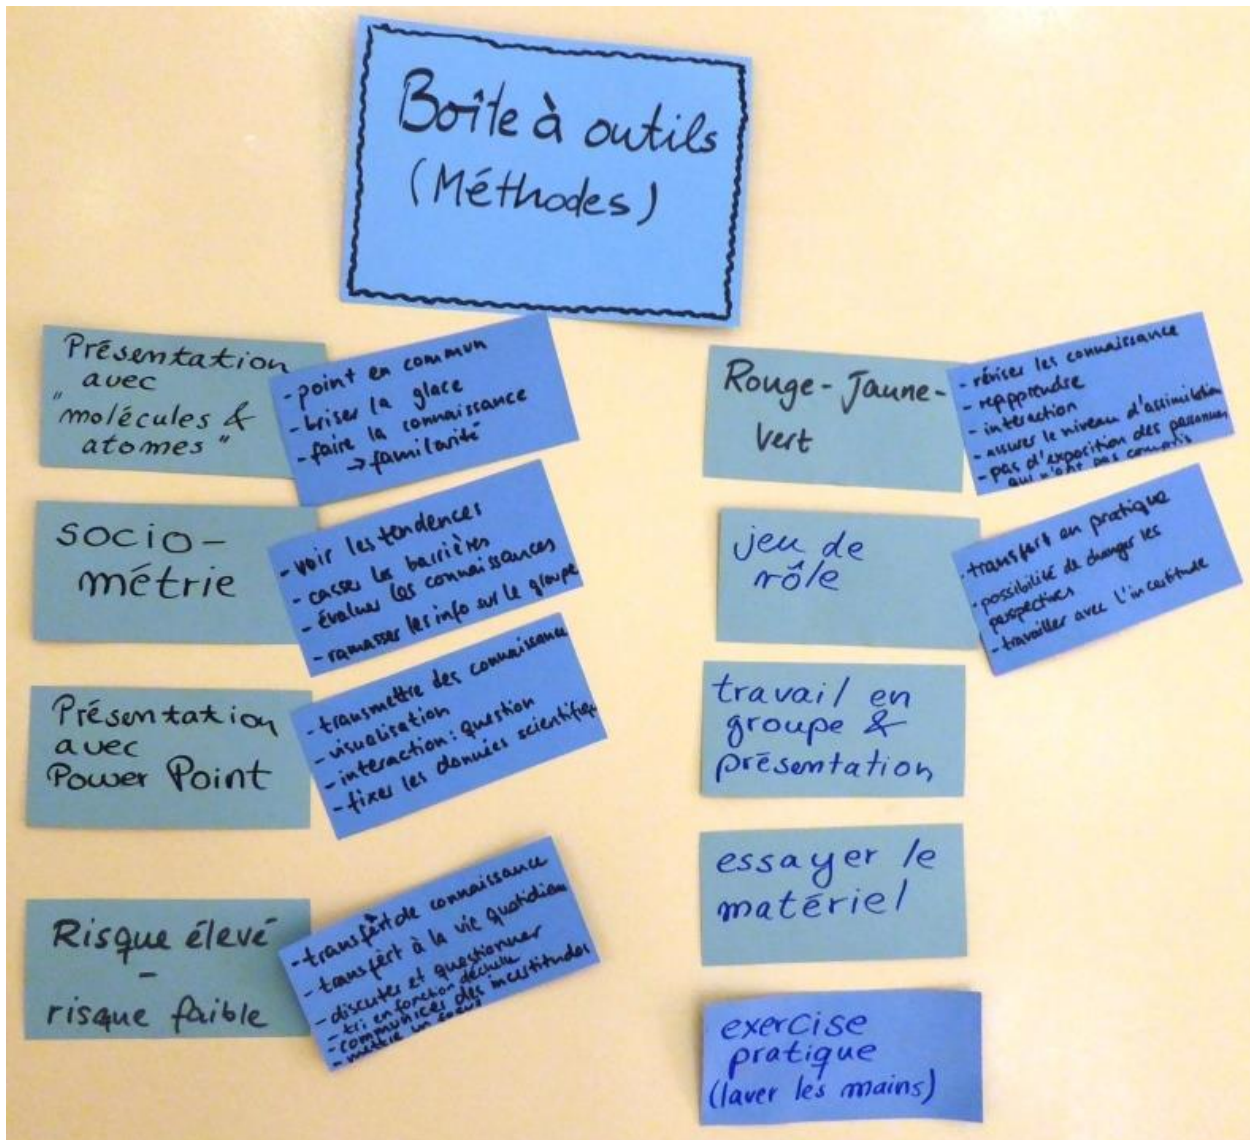 Boîte à outils
(Méthodes)
Présentation
avec
"molécules &
atomes"
- point en commun
- briser la glace
- faire la connaissance
→ familarité
socio-
métrie
- voir les tendences
- casser les barrières
- évaluer les connaissances
- ramasser les info sur le groupe
Présentation
avec
Power Point
- transmettre des connaissance
- visualisation
- interaction: question
- fixer les données scientifiqu
Risque élevé
-
risque faible
- transfèrt de connaissance
- transfèrt à la vie quotidienne
- discuter et questionner
- tri en fonction déchelle
- communiquer des incertitudes
- mettre un
Rouge-Jaune-
Vert
- réviser les connaissance
- repprendre
- interaction
- assurer le niveau d'assimilation
- pas d'exposition des personnes
qui n'ont pas compris
jeu de
rôle
- transfert en pratique
- possibilité de changer les
perspectives
- travailler avec l'incertitude
travail en
groupe &
présentation
essayer le
matériel
exercise
pratique
(laver les mains)